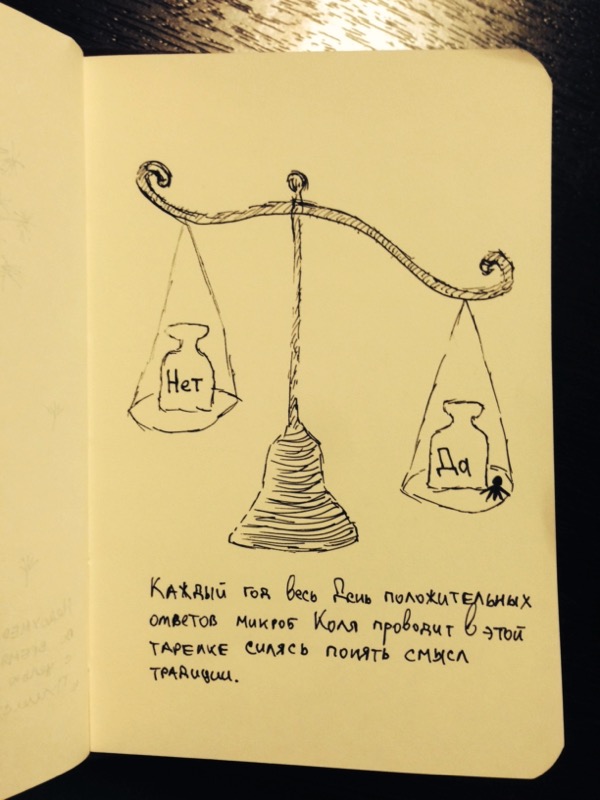 Нет
Да
Каждый год весь День положительных
ответов микроб Коля проводит в этой
тарелке силясь понять смысл
традиции.